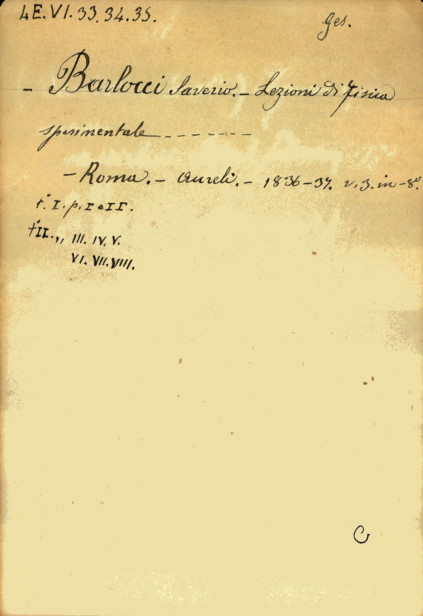 4E.VI.33.34.35.
Ges.
- Barlocci Saverio. - Lezioni di Fisica
sperimentale - - - - - - -
- Roma. - Aureli. - 1836-37. v. 3. in-8°
t. I. p. I e II.
t II. ,, III. IV. V.
VI. VII. VIII.
C